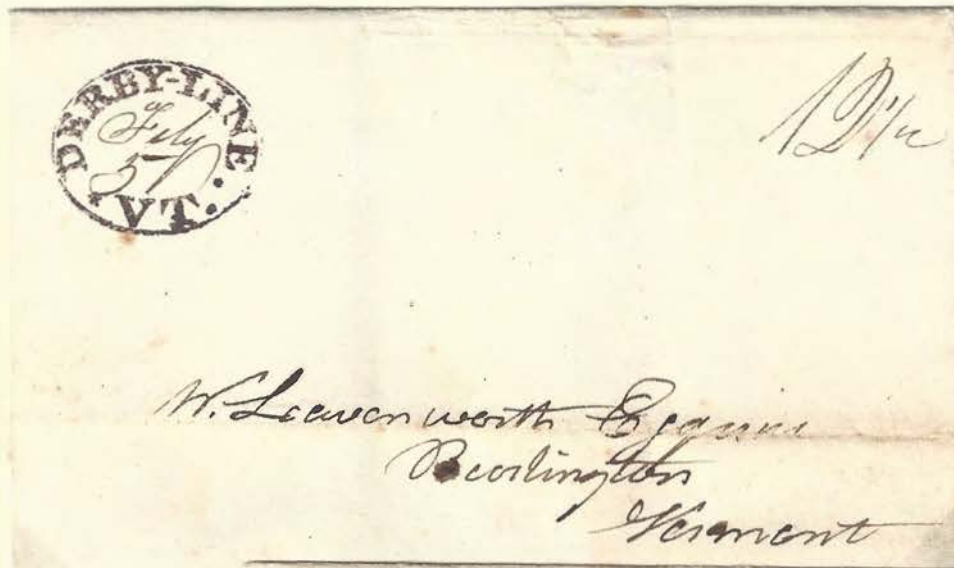 DERBY-LINE
Feby
5
VT.
12 1/2
W. Leavenworth Esquire
Burlington
Vermont